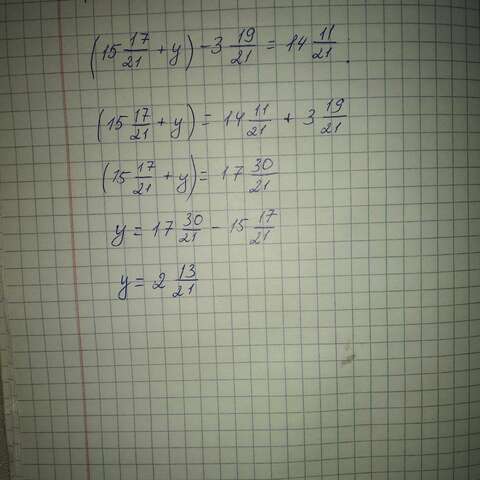 (15 17/21 + y) - 3 19/21 = 14 11/21.
(15 17/21 + y) = 14 11/21 + 3 19/21
(15 17/21 + y) = 17 30/21
y = 17 30/21 - 15 17/21
y = 2 13/21